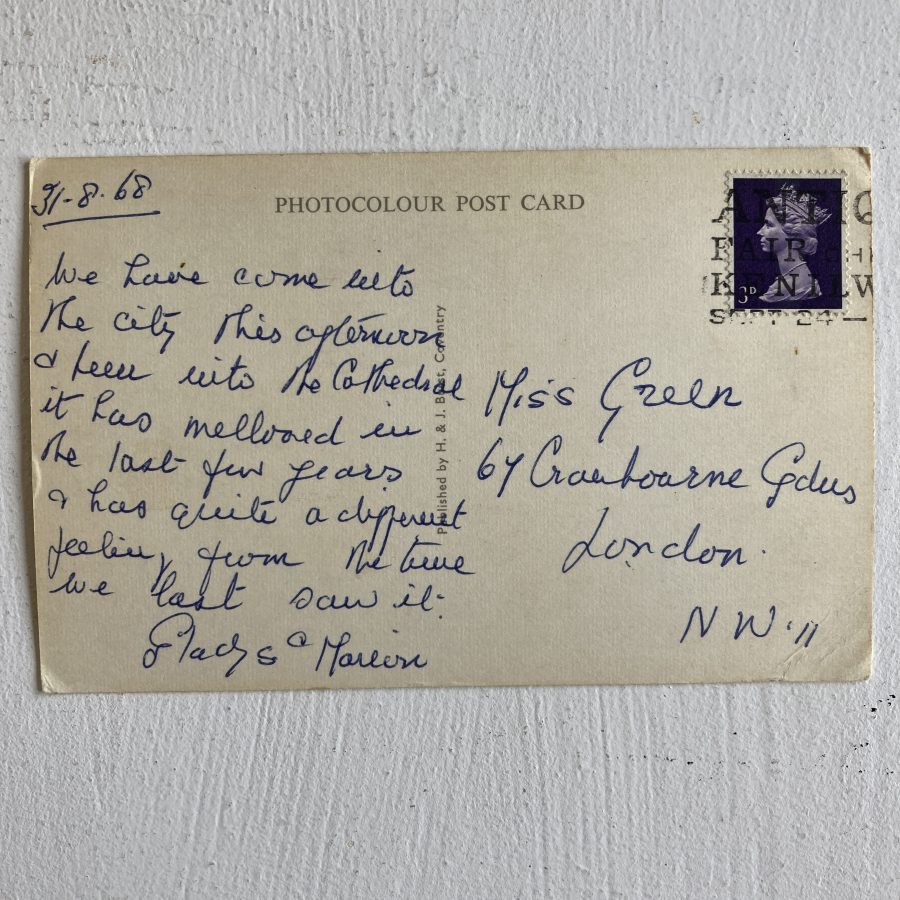 31-8-68
PHOTOCOLOUR POST CARD
We have come into
the city this afternoon
& been into the Cathedral
it has mellowed in
the last few years
& has quite a different
feeling from the time
we last saw it.
Gladys & Marion
Published by H. & J. Busst, Coventry
3D
ANTIQ
FAIR
KENILW
SEPT 24 —
Miss Green
67 Cranbourne Gdns
London.
N W. 11